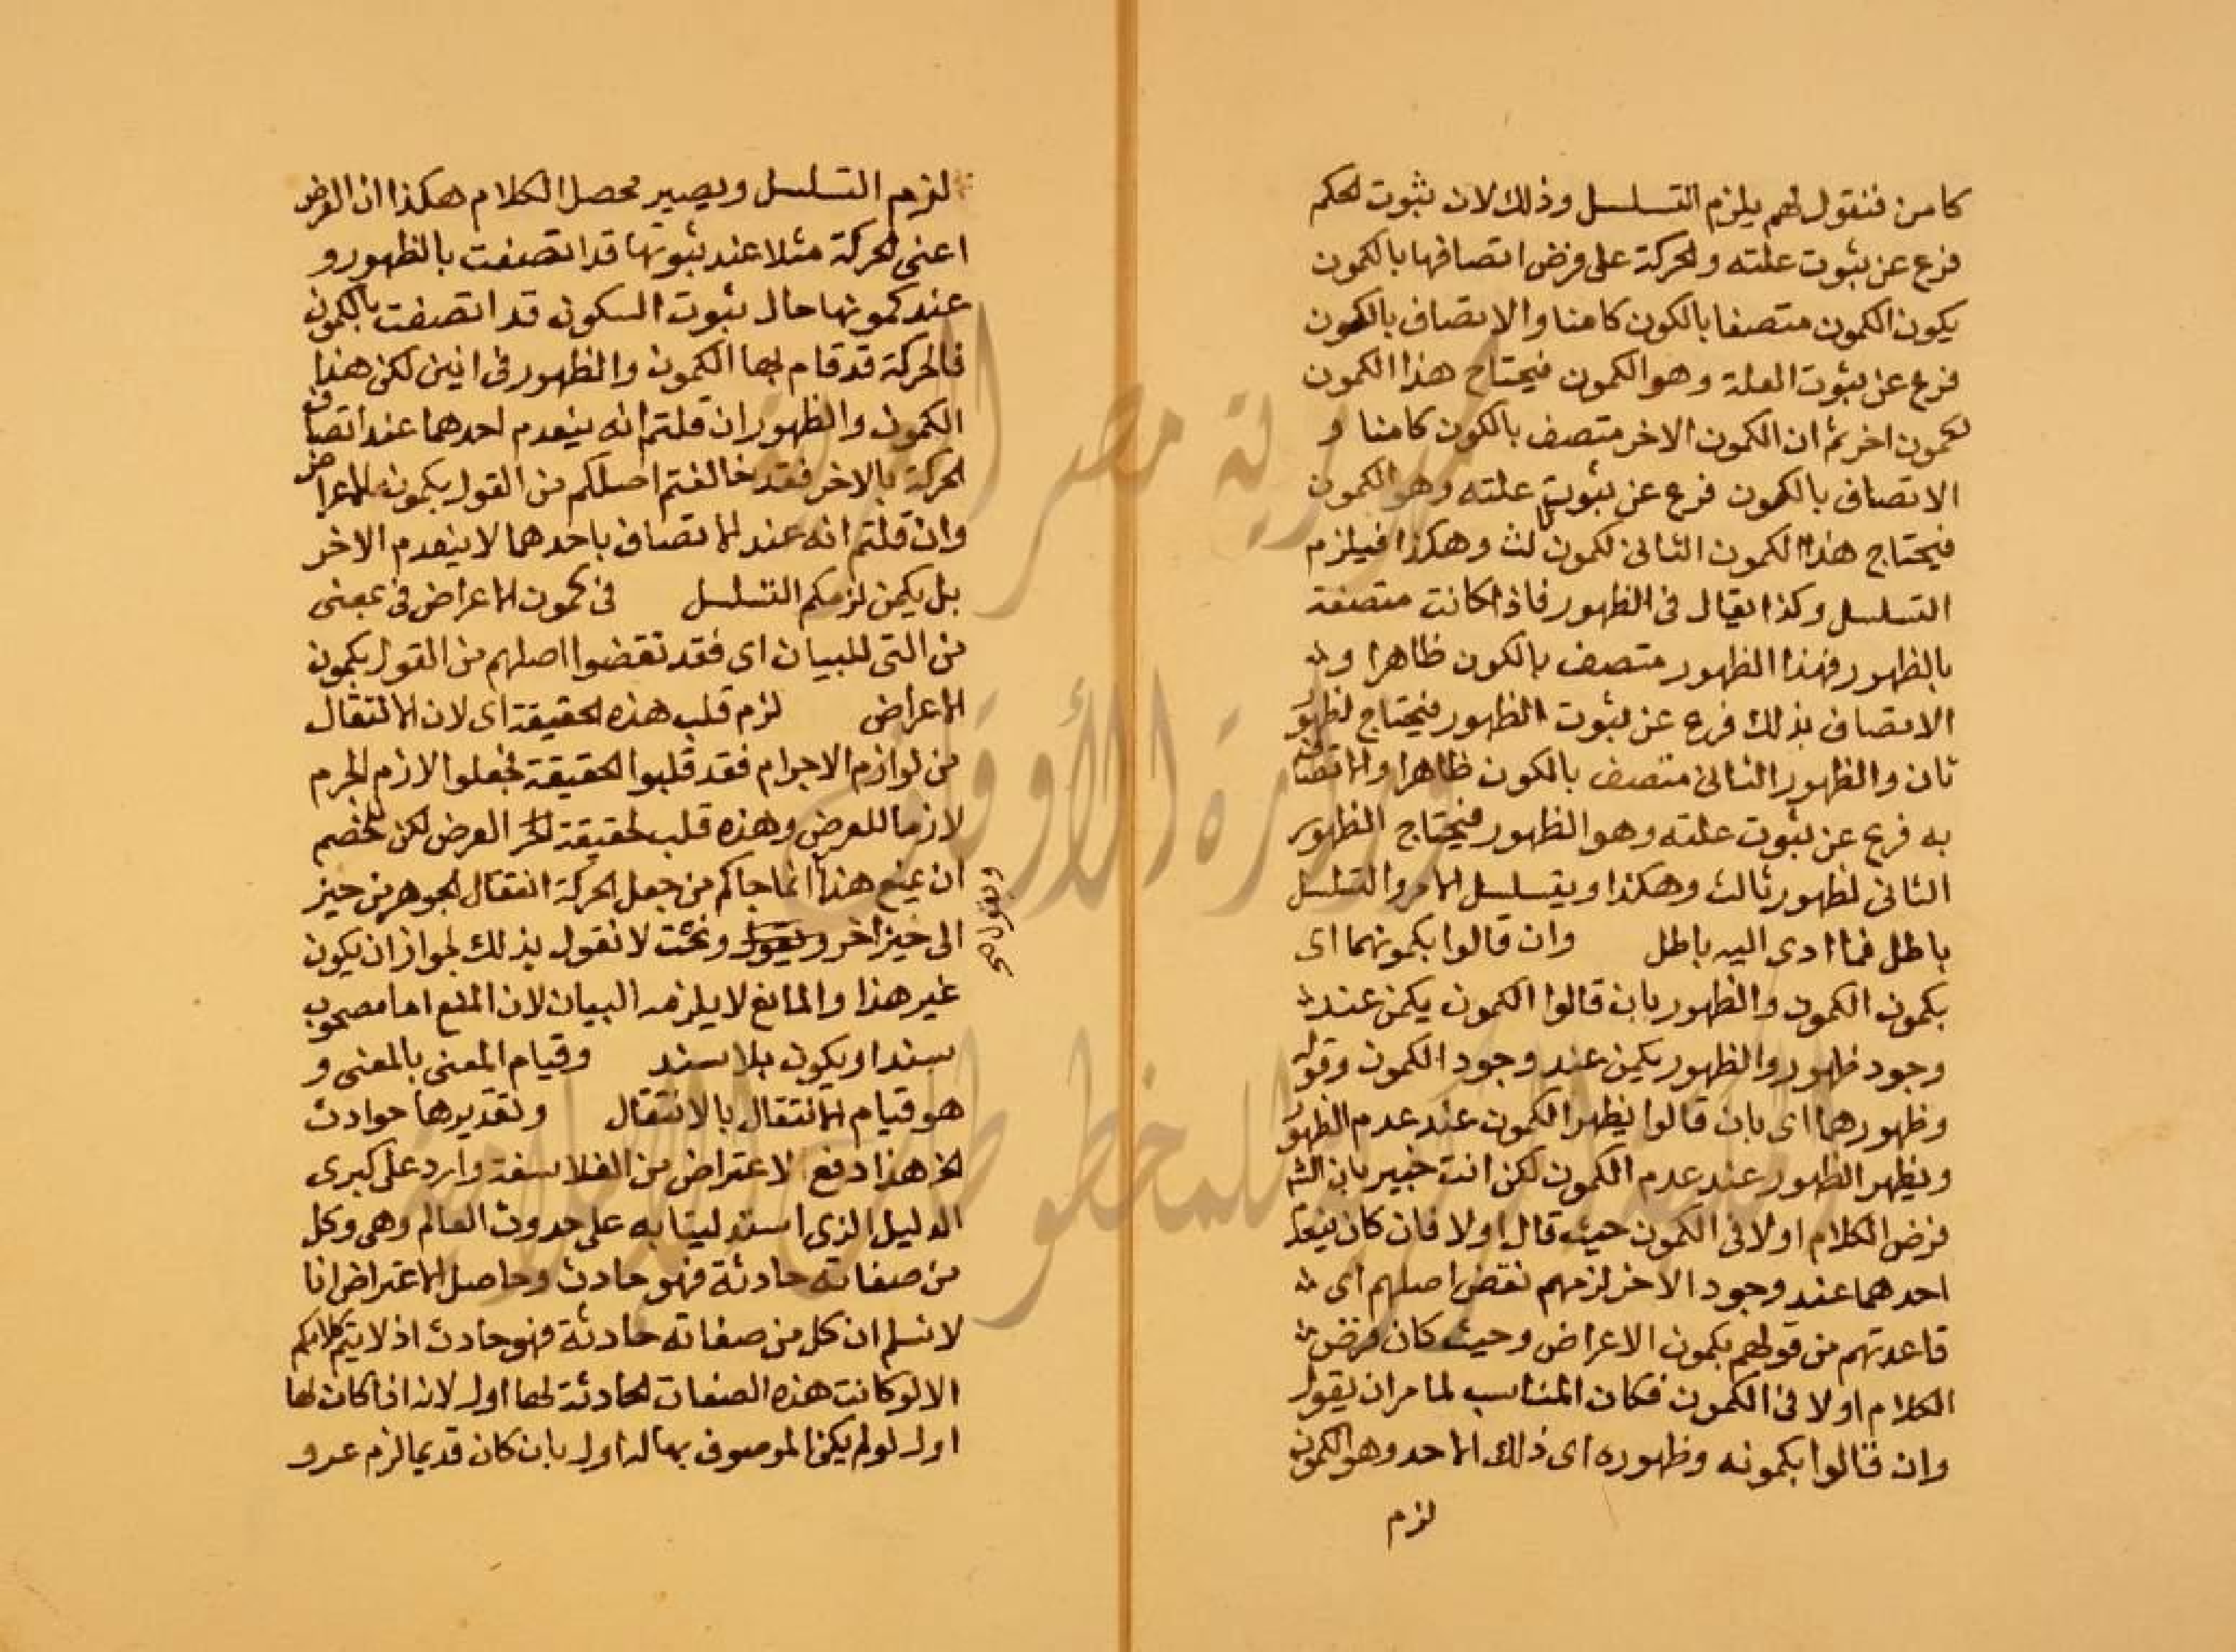 كامن فنقول لهم يلزم التسلسل وذلك لان ثبوت الحكم
فرع عن ثبوت علته والحركة على فرض اتصافها بالكمون
يكون الكمون متصفا بالكون كامنا والاتصاف بالكمون
فرع عن ثبوت العلة وهو الكمون فيحتاج هذا الكمون
لكمون اخر ثم ان الكمون الاخر متصف بالكون كامنا و
الاتصاف بالكمون فرع عن ثبوت علته وهو الكمون
فيحتاج هذا الكمون الثانى لكمون ثالث وهكذا فيلزم
التسلسل وكذا يقال فى الظهور فاذا كانت متصفة
بالظهور فهذا الظهور متصف بالكون ظاهرا و
الاتصاف بذلك فرع عن ثبوت الظهور فيحتاج لظهور
ثان والظهور الثانى متصف بالكون ظاهرا والاتصاف
به فرع عن ثبوت علته وهو الظهور فيحتاج الظهور
الثانى لظهور ثالث وهكذا ويتسلسل الامر والتسلسل
باطل فما ادى اليه باطل وان قالوا بكمونهما اى
بكمون الكمون والظهور بان قالوا الكمون يكمن عند
وجود ظهور والظهور يكمن عند وجود الكمون وقوله
وظهورهما اى بان قالوا يظهر الكمون عند عدم الظهور
ويظهر الظهور عند عدم الكمون لكن انت خبير بان الشـ
فرض الكلام اولا فى الكمون حيث قال اولا فان كان ينعد
احدهما عند وجود الاخر لزمهم نقض اصلهم اى
قاعدتهم من قولهم بكمون الاعراض وحيث كان فرض
الكلام اولا فى الكمون فكان المناسب لما مر ان يقول
وان قالوا بكمونه وظهوره اى ذلك الاحد وهو الكمون
لزم
لزم التسلسل ويصير محصل الكلام هكذا ان العرض
اعنى الحركة مثلا عند ثبوتها قد اتصفت بالظهور و
عند كمونها حال ثبوت السكون قد اتصفت بالكمون
فالحركة قد قام بها الكمون والظهور فى انين لكن هذا
الكمون والظهور ان قلتم انه ينعدم احدهما عند اتصاف
الحركة بالاخر فقد خالفتم اصلكم من القول بكمون الاعراض
وان قلتم انه عند الاتصاف باحدهما لا ينعدم الاخر
بل يكمن لزمكم التسلسل فى كمون الاعراض فى بمعنى
من التى للبيان اى فقد نقضوا اصلهم من القول بكمون
الاعراض لزم قلب هذه الحقيقة اى لان الانتقال
من لوازم الاجرام فقد قلبوا الحقيقة فجعلوا الازم للجرم
لازما للعرض وهذه قلب لحقيقة العرض لكن للخصم
ان يمنع هذا انما جاكم من جعل الحركة انتقال الجوهر من حيز
الى حيز اخر ونحن لا نقول بذلك لجواز ان يكون
ويقول صح
غير هذا والمانع لا يلزمه البيان لان المنع اما مصحوب
بسند او يكون بلا سند وقيام المعنى بالمعنى و
هو قيام الانتقال بالانتقال وتقديرها حوادث
الخ هذا دفع لاعتراض من الفلاسفة وارد على كبرى
الدليل الذى استدلينا به على حدوث العالم وهى وكل
من صفاته حادثة فهو حادث وحاصل الاعتراض انا
لا نسلم ان كل من صفاته حادثة فهو حادث اذ لا يتم كلامكم
الا لو كانت هذه الصفات الحادثة لها اول لانه اذا كان لها
اول لو لم يكن الموصوف بها له اول بان كان قديما لزم عرو